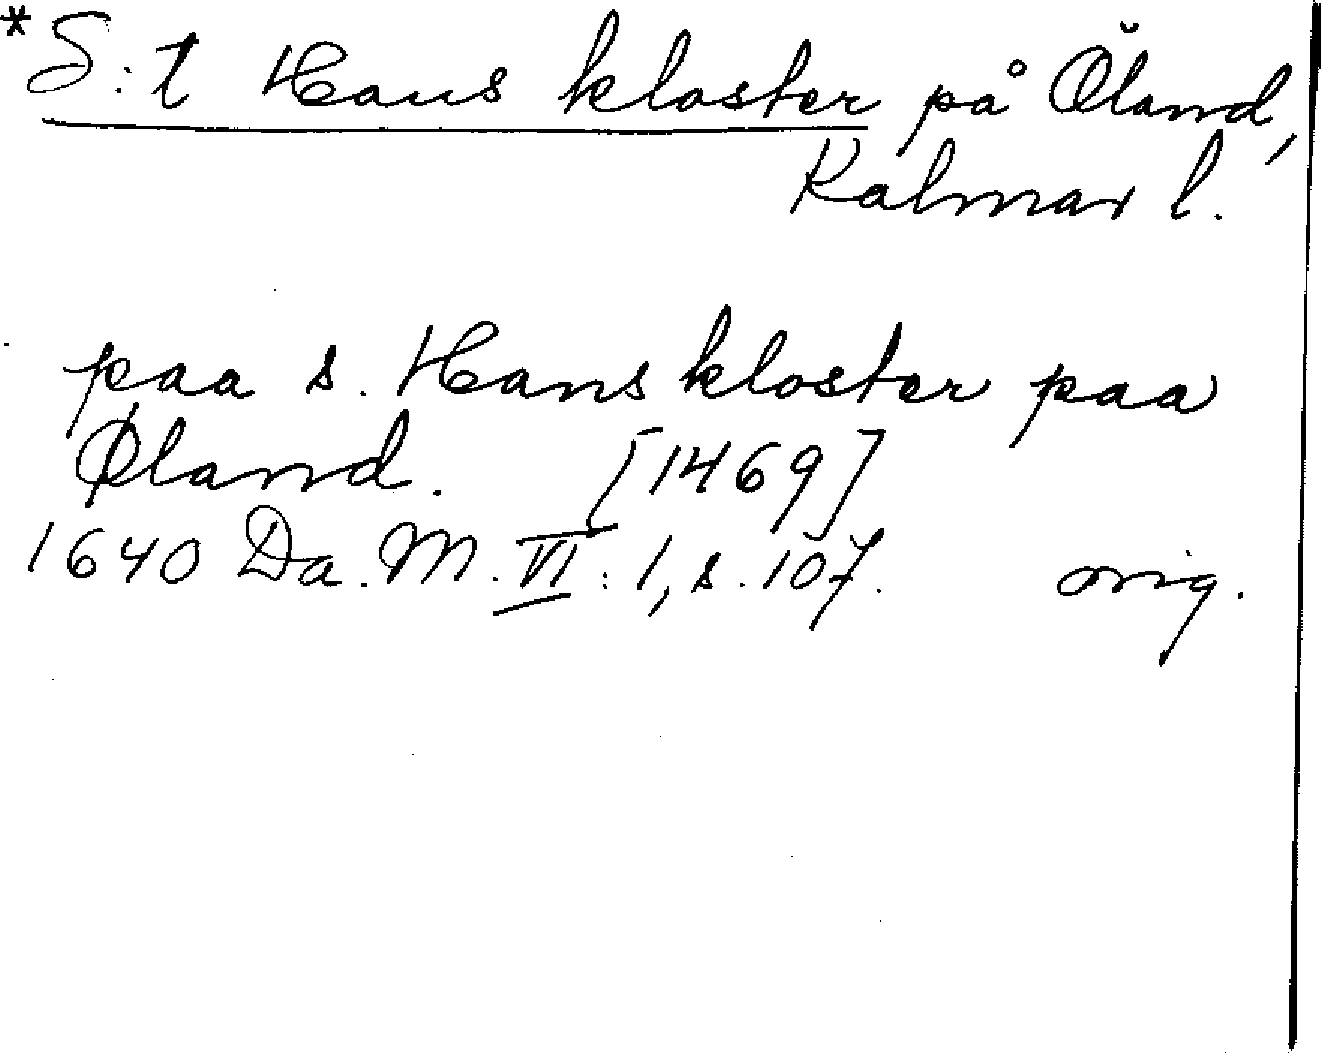 *S:t Hans kloster på Öland,
Kalmar l.
paa s. Hans kloster paa
Øland. [1469]
1640 Da. M. VI: 1, s. 107. orig.